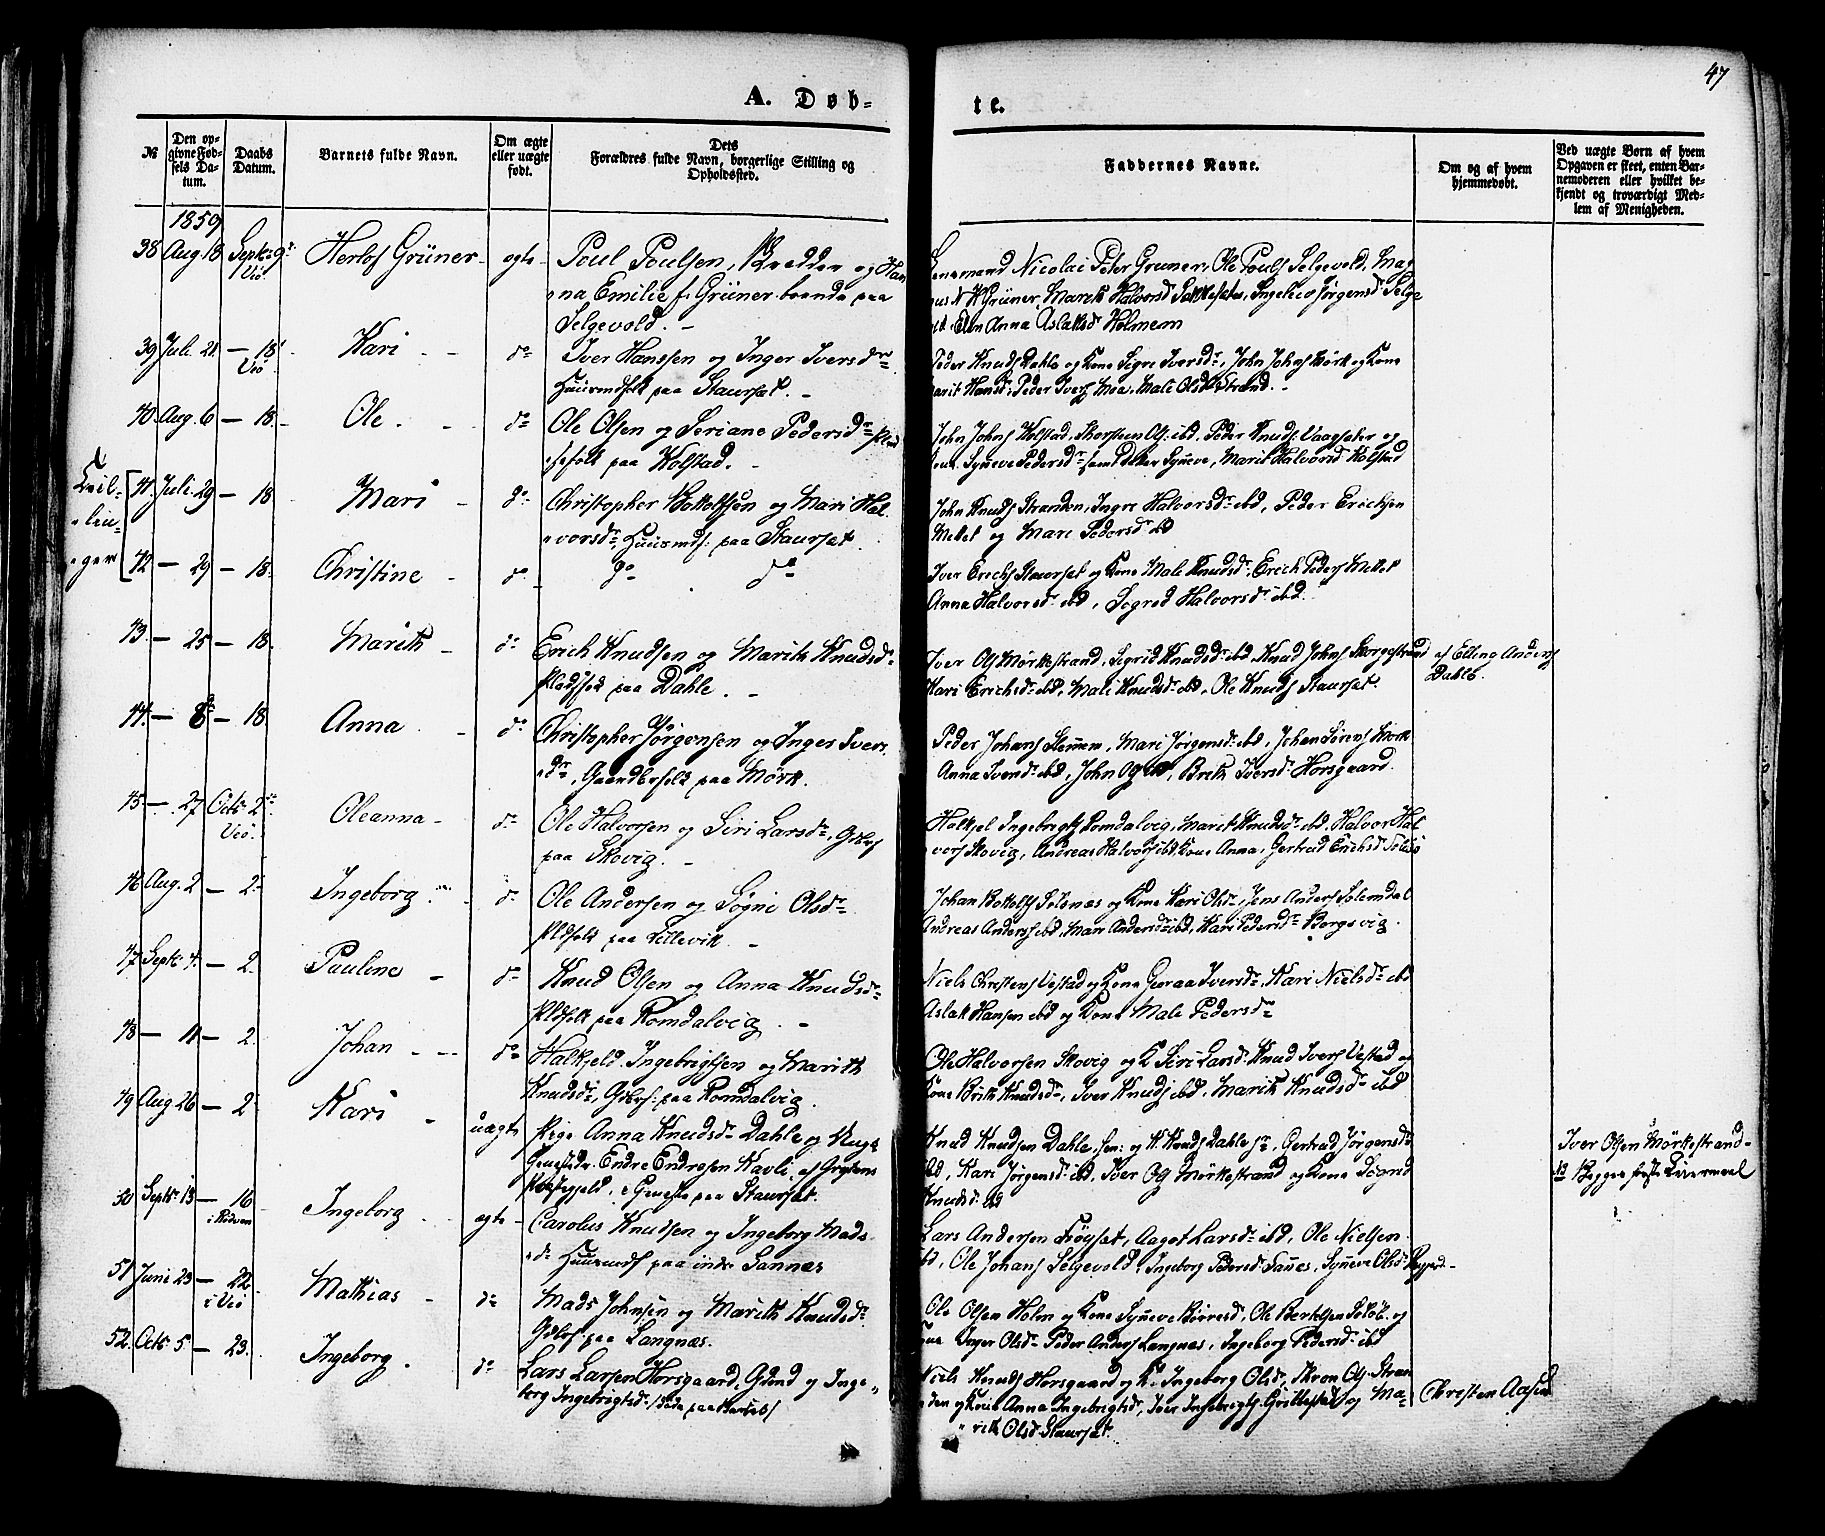 47
A. Døb-
te.
№
Den opgivne Fødsels Datum.
Daabs Datum.
Barnets fulde Navn.
Om ægte eller uægte født.
Dets Forældres fulde Navn, borgerlige Stilling og Opholdssted.
Faddernes Navne.
Om og af hvem hjemmedøbt.
Ved uægte Børn af hvem Opgaven er skeet, enten Barnemoderen eller hvilket bekjendt og troværdigt Medlem af Menigheden.
1859
38 Aug 18 Septr 9de Herlof Grüner ægte Poul Poulsen, og Han-
Veø na Emilie f. Grüner boende paa
Selgevold.
Lensmand Nicolai Peter Gruner, Ole Pouls Selgevold, Mag
nus N K Grüner, Marit Halvorsdr Sølge
Anna Aslaksdr Holmem
39 Juli 21 — 18 Kari do Iver Hanssen og Inger Iversdr
Veø Huusmdfolk paa Staurset.
Peder Knuds Dahle og Kone Sigri Iversdr, John Johns Mørk og Kone
Marit Hansdr, Peder Ivers Moe, Mali Olsdr Strand.
40 Aug. 6 — 18 Ole do Ole Olsen og Seriane Pedersdr Plad
sefolk paa Kolstad.
John Johns Kolstad, Thorsteen Ols: ibd, Peder Knuds: Vaagsæter og
Kone Synneve Pedersdr samt datter Synneve, Marit Halvorsd Kolstad
Tvil-
lin-
ger
41 Juli 29 — 18 Mari do Christopher Bottolfsen og Mari Hal
vorsdr, Huusmdf: paa Staurset
John Knuds Stranden, Ingri Halvorsdr ibd, Peder Erichsen
Mittet og Mari Pedersdr ibd
42 — 29 — 18. Christine do do do
Iver Erichs Staurset og Kone Mali Knudsdr, Erich Peders Mittet
Anna Halvorsdr ibd, Sigrid Halvorsdr ibd.
43 — 25 — 18. Marith do Erich Knudsen og Marith Knudsdr
Pladsfolk paa Dahle.
Iver Ols Mørkestrand, Sigrid Knudsdr ibd, Knud Johns Skorgestrand
Kari Erichsdr ibd, Mali Knudsdr ibd, Ole Knuds Staurset.
af Elling Anders
Dahle.
44 — 8 — 18 Anna do Christopher Jørgensen og Inger Ivers
dr, Gaardbrfolk paa Mørk.
Peder Johans Stemmem, Mari Jørgensdr ibd, Johan Sørens Mørk
Anna Iversdr ibd, John Ols ibd, Brith Iversdr Horsgaard.
45 — 27 Octr 2de Oleanna do Ole Halvorsen og Siri Larsdr, Gdbrf
Veø. paa Skovig.
Halkjel Ingebrigts Romdalvig, Marit Knudsdr ibd, Halvor Hal
vors Skovig, Andreas Halvors ibd, Kone Anna, Gertrud Erichsd
46 Aug. 2 — 2 Ingeborg do Ole Andersen og Søgni Olsdr
Pldfolk paa Sellevik.
Johan Bottolfs Selsnæs og Kone Kari Olsdr, Jens Anders Solemdal
Andreas Anders ibd, Mari Andersdr ibd, Kari Pedersdr Borgsvig.
47 Septr 4. — 2. Pauline do Knud Olsen og Anna Knudsdr
Pldfolk paa Romdalvig.
Niels Christens Vestad og Kone Iversdr, Kari Nielsdr ibd
Aslak Hansen ibd og Kone Mali Pedersdr
48 — 11 — 2. Johan do Halkjeld Ingebrigtsen og Marith
Knudsdr, Gdbrf: paa Romdalvig.
Ole Halvorsen Skovig og K Siri Larsdr Knud Ivers Vestad og
Kone Brith Knudsdr, Iver Knuds ibd, Marith Knudsdr ibd
49 Aug 26 — 2 Kari uægte Pige Anna Knudsdr Dahle og Ungk
Endre Endresen Kavli af Gryten
Præstegjeld, paa Staurset.
Knud Knudsen Dahle, sen: og K. Knuds Dahle jr, Gertrud Jørgensdr
ibd, Kari Jørgensdr ibd, Iver Ols Mørkestrand og Kone Sigrid
Knudsdr ibd
Iver Olsen Mørkestrand
50 Septr 13 — 16 Ingeborg ægte Carolus Knudsen og Ingeborg Mads
i Rødven dr Huusmdf paa indre Sannæs
Lars Andersen Frøyset, Aagot Larsdr ibd, Ole Nielsen
ibd, Ole Johans Selgevold, Ingeborg Pedersdr Sannes, Synneve Olsdr
51 Juni 23 — 22 Mathias do Mads Johnsen og Marith Knudsdr
i Veø Gdbrf paa Langnæs.
Ole Olsen Holm og Kone Synneve, Ole Bertelsen og
Kone Inger Olsdr Peder Anders Langnæs, Ingeborg Pedersdr ibd
52. Octr 5 — 23. Ingeborg do Lars Larsen Horsgaard, Gdmd og Inge-
borg Ingebrigtsdr
Niels Knuds Horsgaard og K. Ingeborg Olsdr, Thron Ols Stran
den og Kone Anna Ingebrigtsdr, Iver Ingebrigts og Ma-
rith Olsdr Staurset.
Christen Aasen